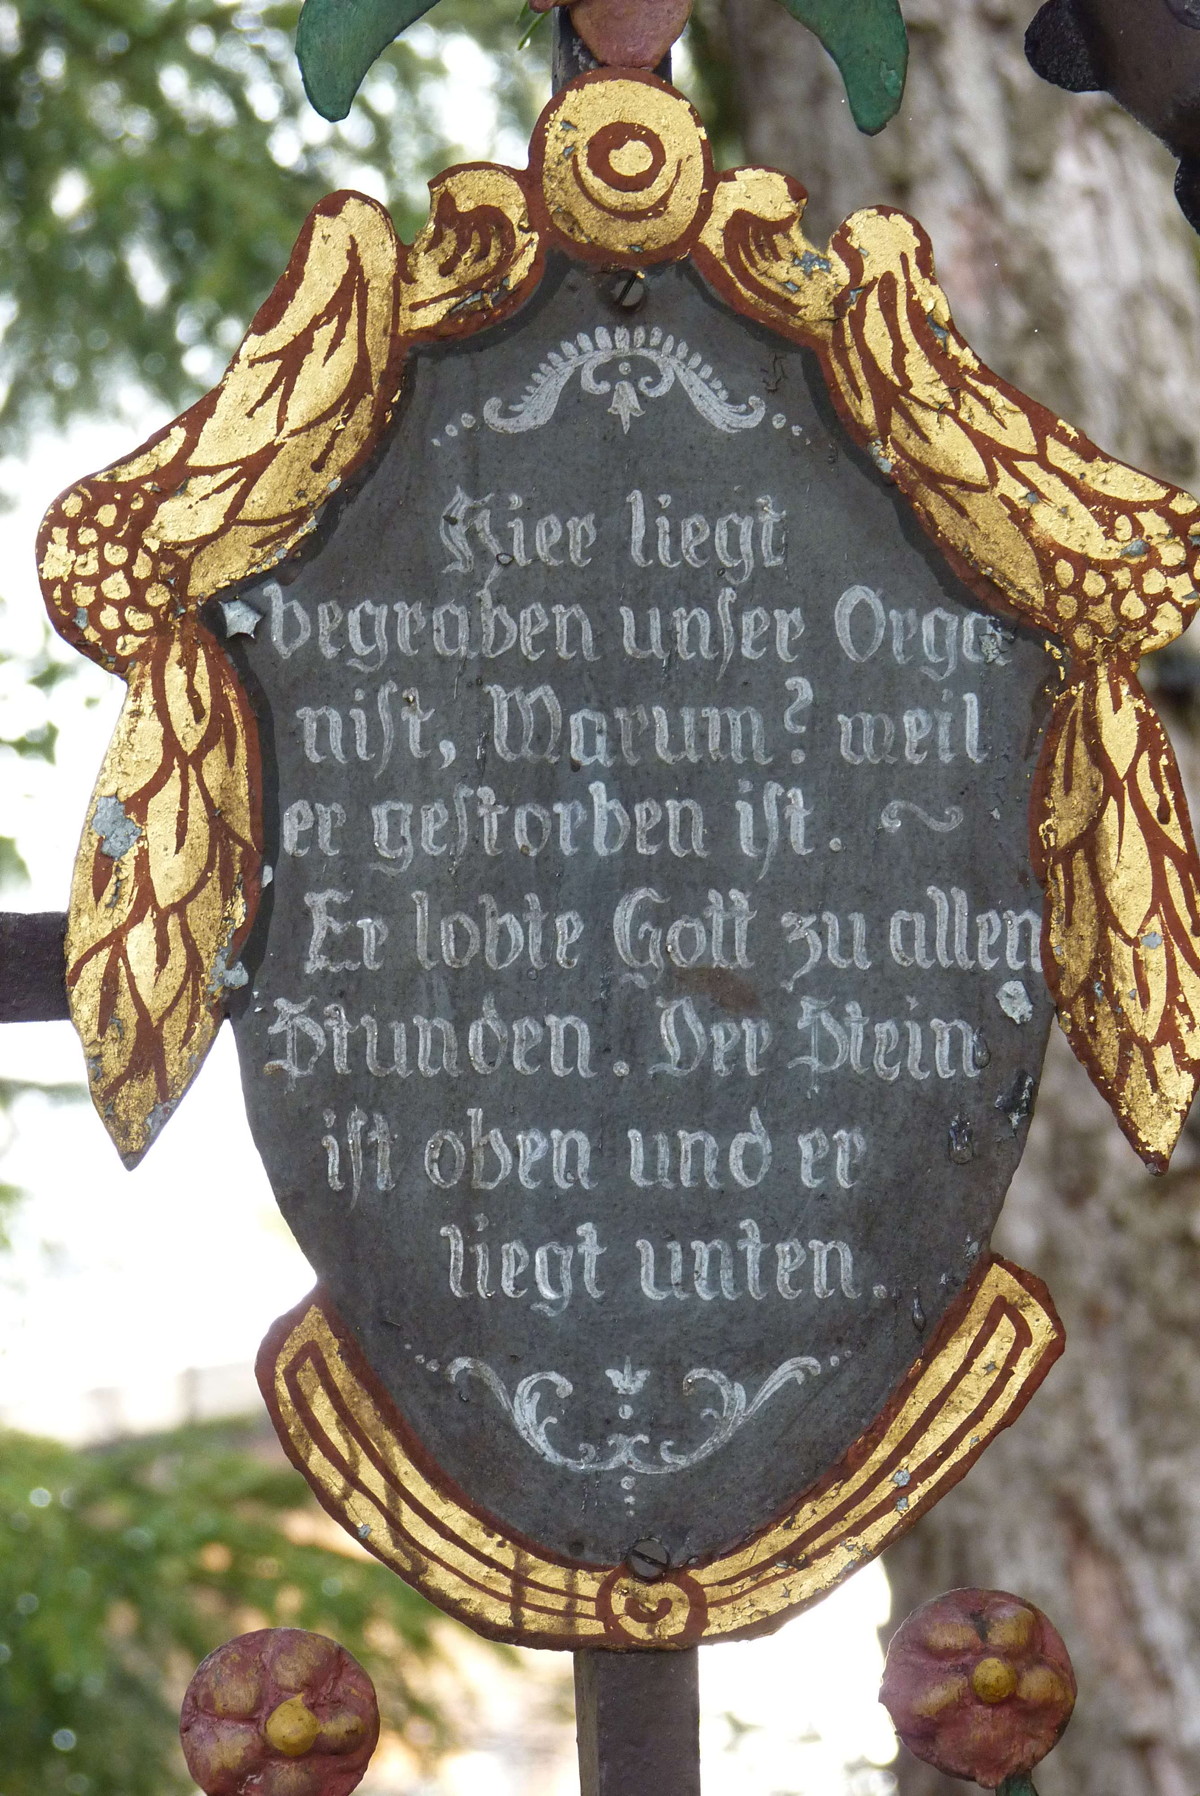 Hier liegt
begraben unſer Orga
niſt, Warum? weil
er geſtorben iſt. ~
Er lobte Gott zu allen
Stunden. Der Stein
iſt oben und er
liegt unten.